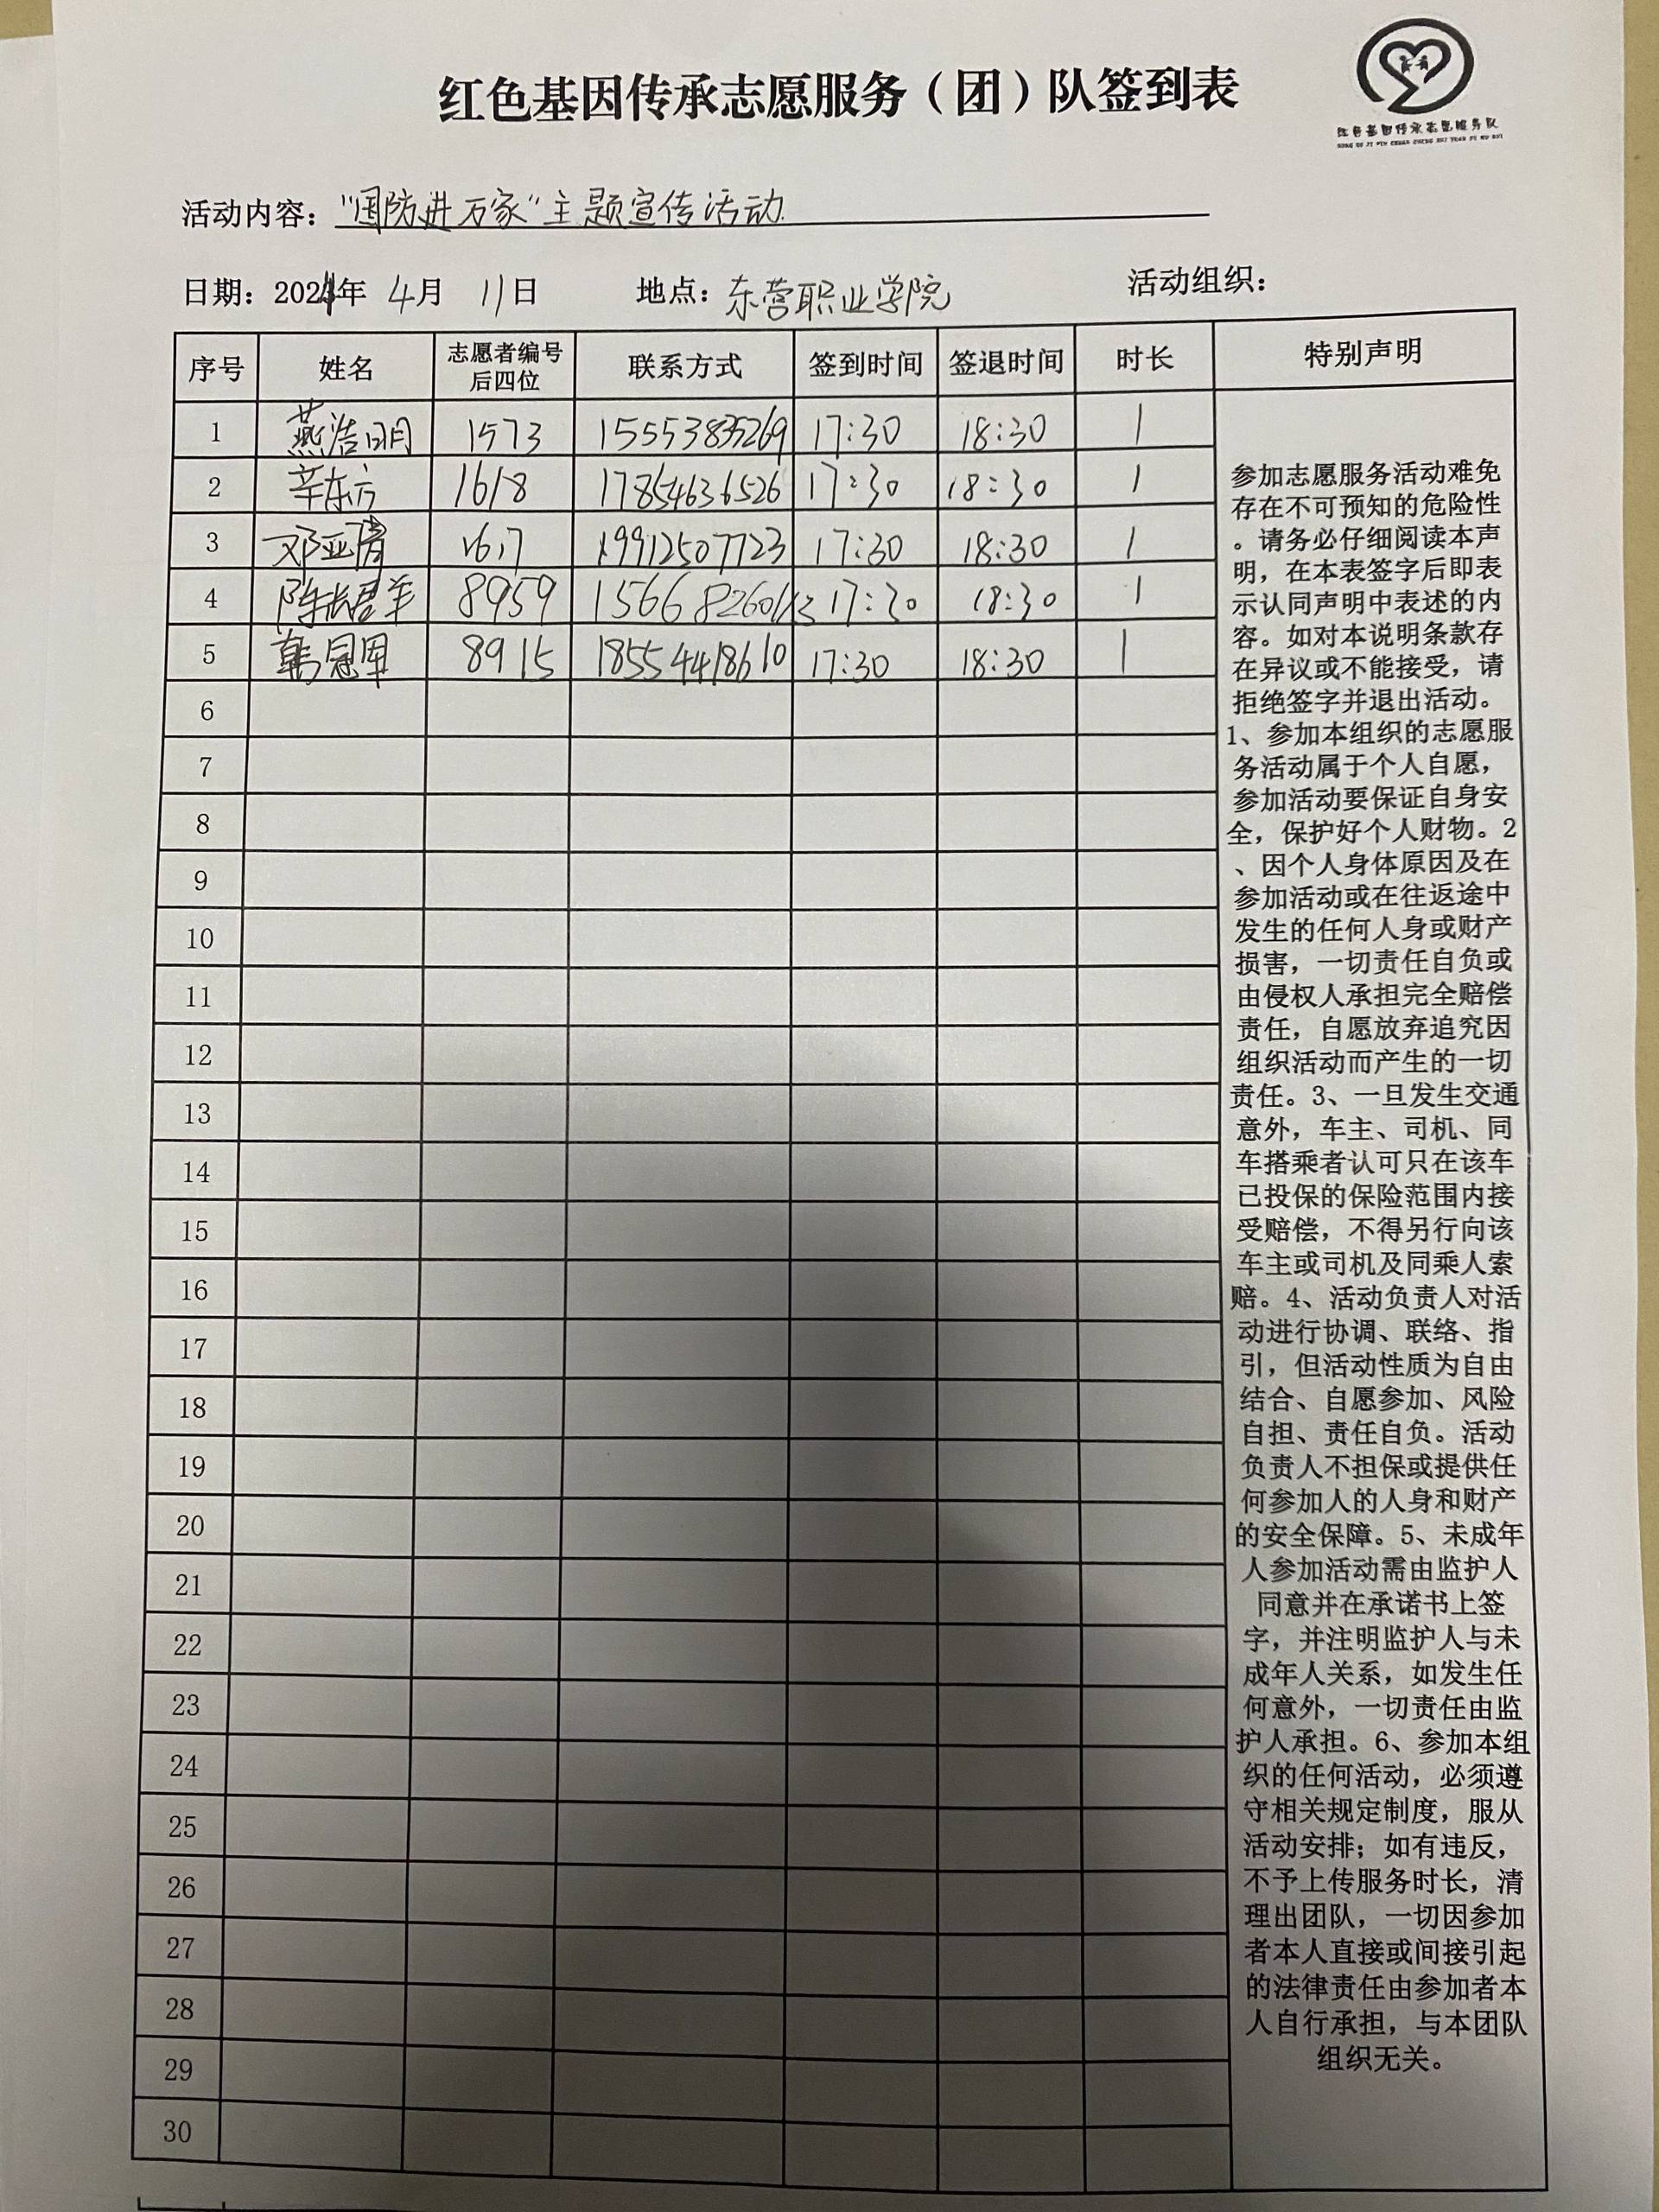 红色基因传承志愿服务（团）队签到表
红色基因传承志愿服务队
HONG SE JI YIN CHUAN CHENG ZHI YUAN FU WU DUI
活动内容：“国防进万家”主题宣传活动
日期：2024年 4月 11日 地点：东营职业学院 活动组织：
序号 姓名 志愿者编号后四位 联系方式 签到时间 签退时间 时长 特别声明
1 燕浩明 1573 17:30 18:30 1
2 辛东方 1618 17854636526 17:30 18:30 1
3 邓亚倩 1617 19912507723 17:30 18:30 1
4 8959 17:30 18:30 1
5 韩冠军 8915 18554418610 17:30 18:30 1
6
7
8
9
10
11
12
13
14
15
16
17
18
19
20
21
22
23
24
25
26
27
28
29
30
参加志愿服务活动难免
存在不可预知的危险性
。请务必仔细阅读本声
明，在本表签字后即表
示认同声明中表述的内
容。如对本说明条款存
在异议或不能接受，请
拒绝签字并退出活动。
1、参加本组织的志愿服
务活动属于个人自愿，
参加活动要保证自身安
全，保护好个人财物。2
、因个人身体原因及在
参加活动或在往返途中
发生的任何人身或财产
损害，一切责任自负或
由侵权人承担完全赔偿
责任，自愿放弃追究因
组织活动而产生的一切
责任。3、一旦发生交通
意外，车主、司机、同
车搭乘者认可只在该车
已投保的保险范围内接
受赔偿，不得另行向该
车主或司机及同乘人索
赔。4、活动负责人对活
动进行协调、联络、指
引，但活动性质为自由
结合、自愿参加、风险
自担、责任自负。活动
负责人不担保或提供任
何参加人的人身和财产
的安全保障。5、未成年
人参加活动需由监护人
同意并在承诺书上签
字，并注明监护人与未
成年人关系，如发生任
何意外，一切责任由监
护人承担。6、参加本组
织的任何活动，必须遵
守相关规定制度，服从
活动安排；如有违反，
不予上传服务时长，清
理出团队，一切因参加
者本人直接或间接引起
的法律责任由参加者本
人自行承担，与本团队
组织无关。